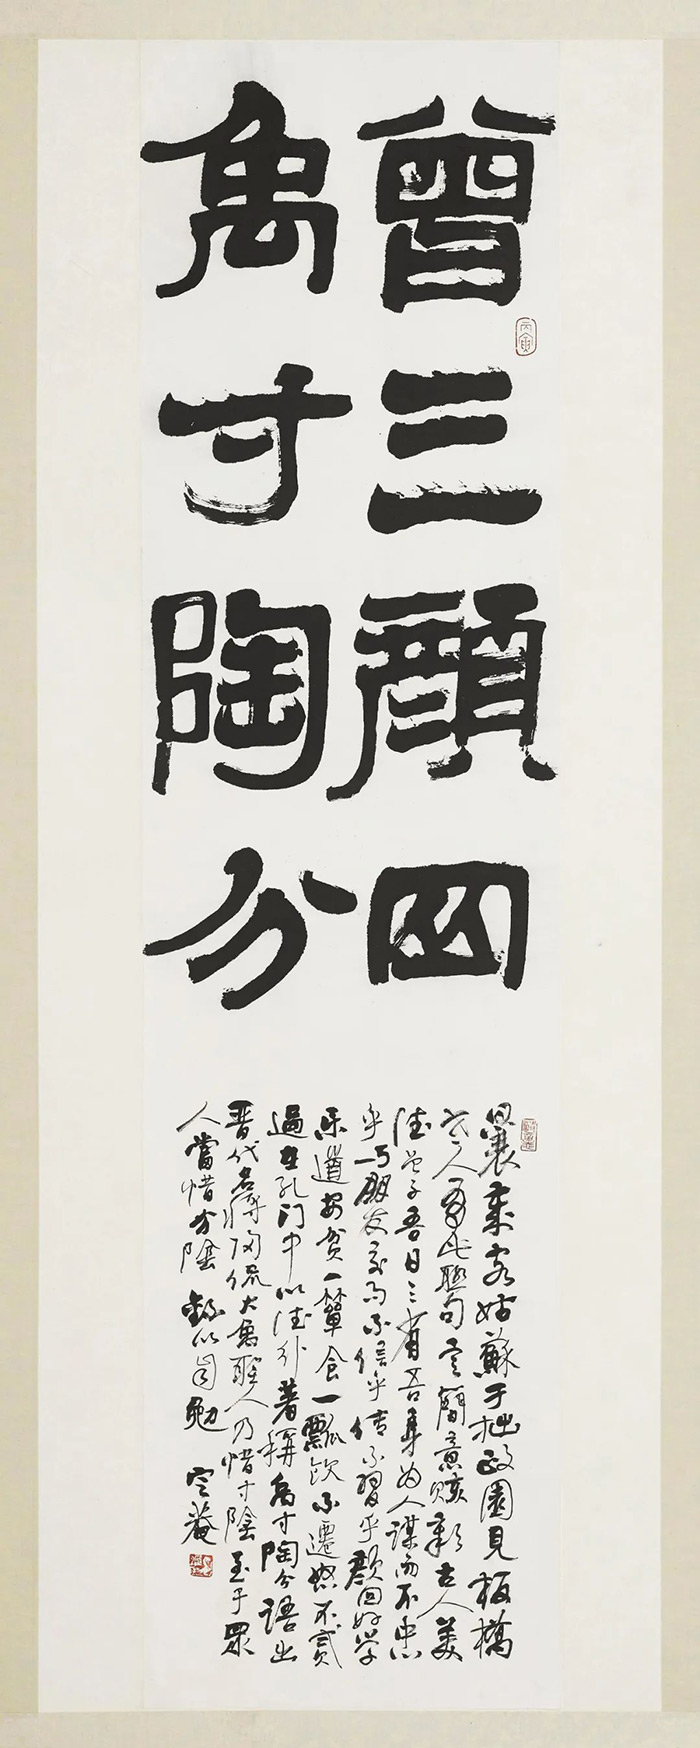 曾三顏四
禹寸陶分
曩乘客姑蘇于拙政園見板橋
老人有此聯句言簡意賅彰古人美
德曾子吾日三省吾身為人謀而不忠
乎與朋友交而不信乎傳不習乎顏回好學
樂道安貧一簞食一瓢飲不遷怒不貳
過在孔門中以德行著稱禹寸陶分語出
晉代名將陶侃大禹聖人乃惜寸陰至于眾
人當惜分陰錄以自勉 定菴
丙寅